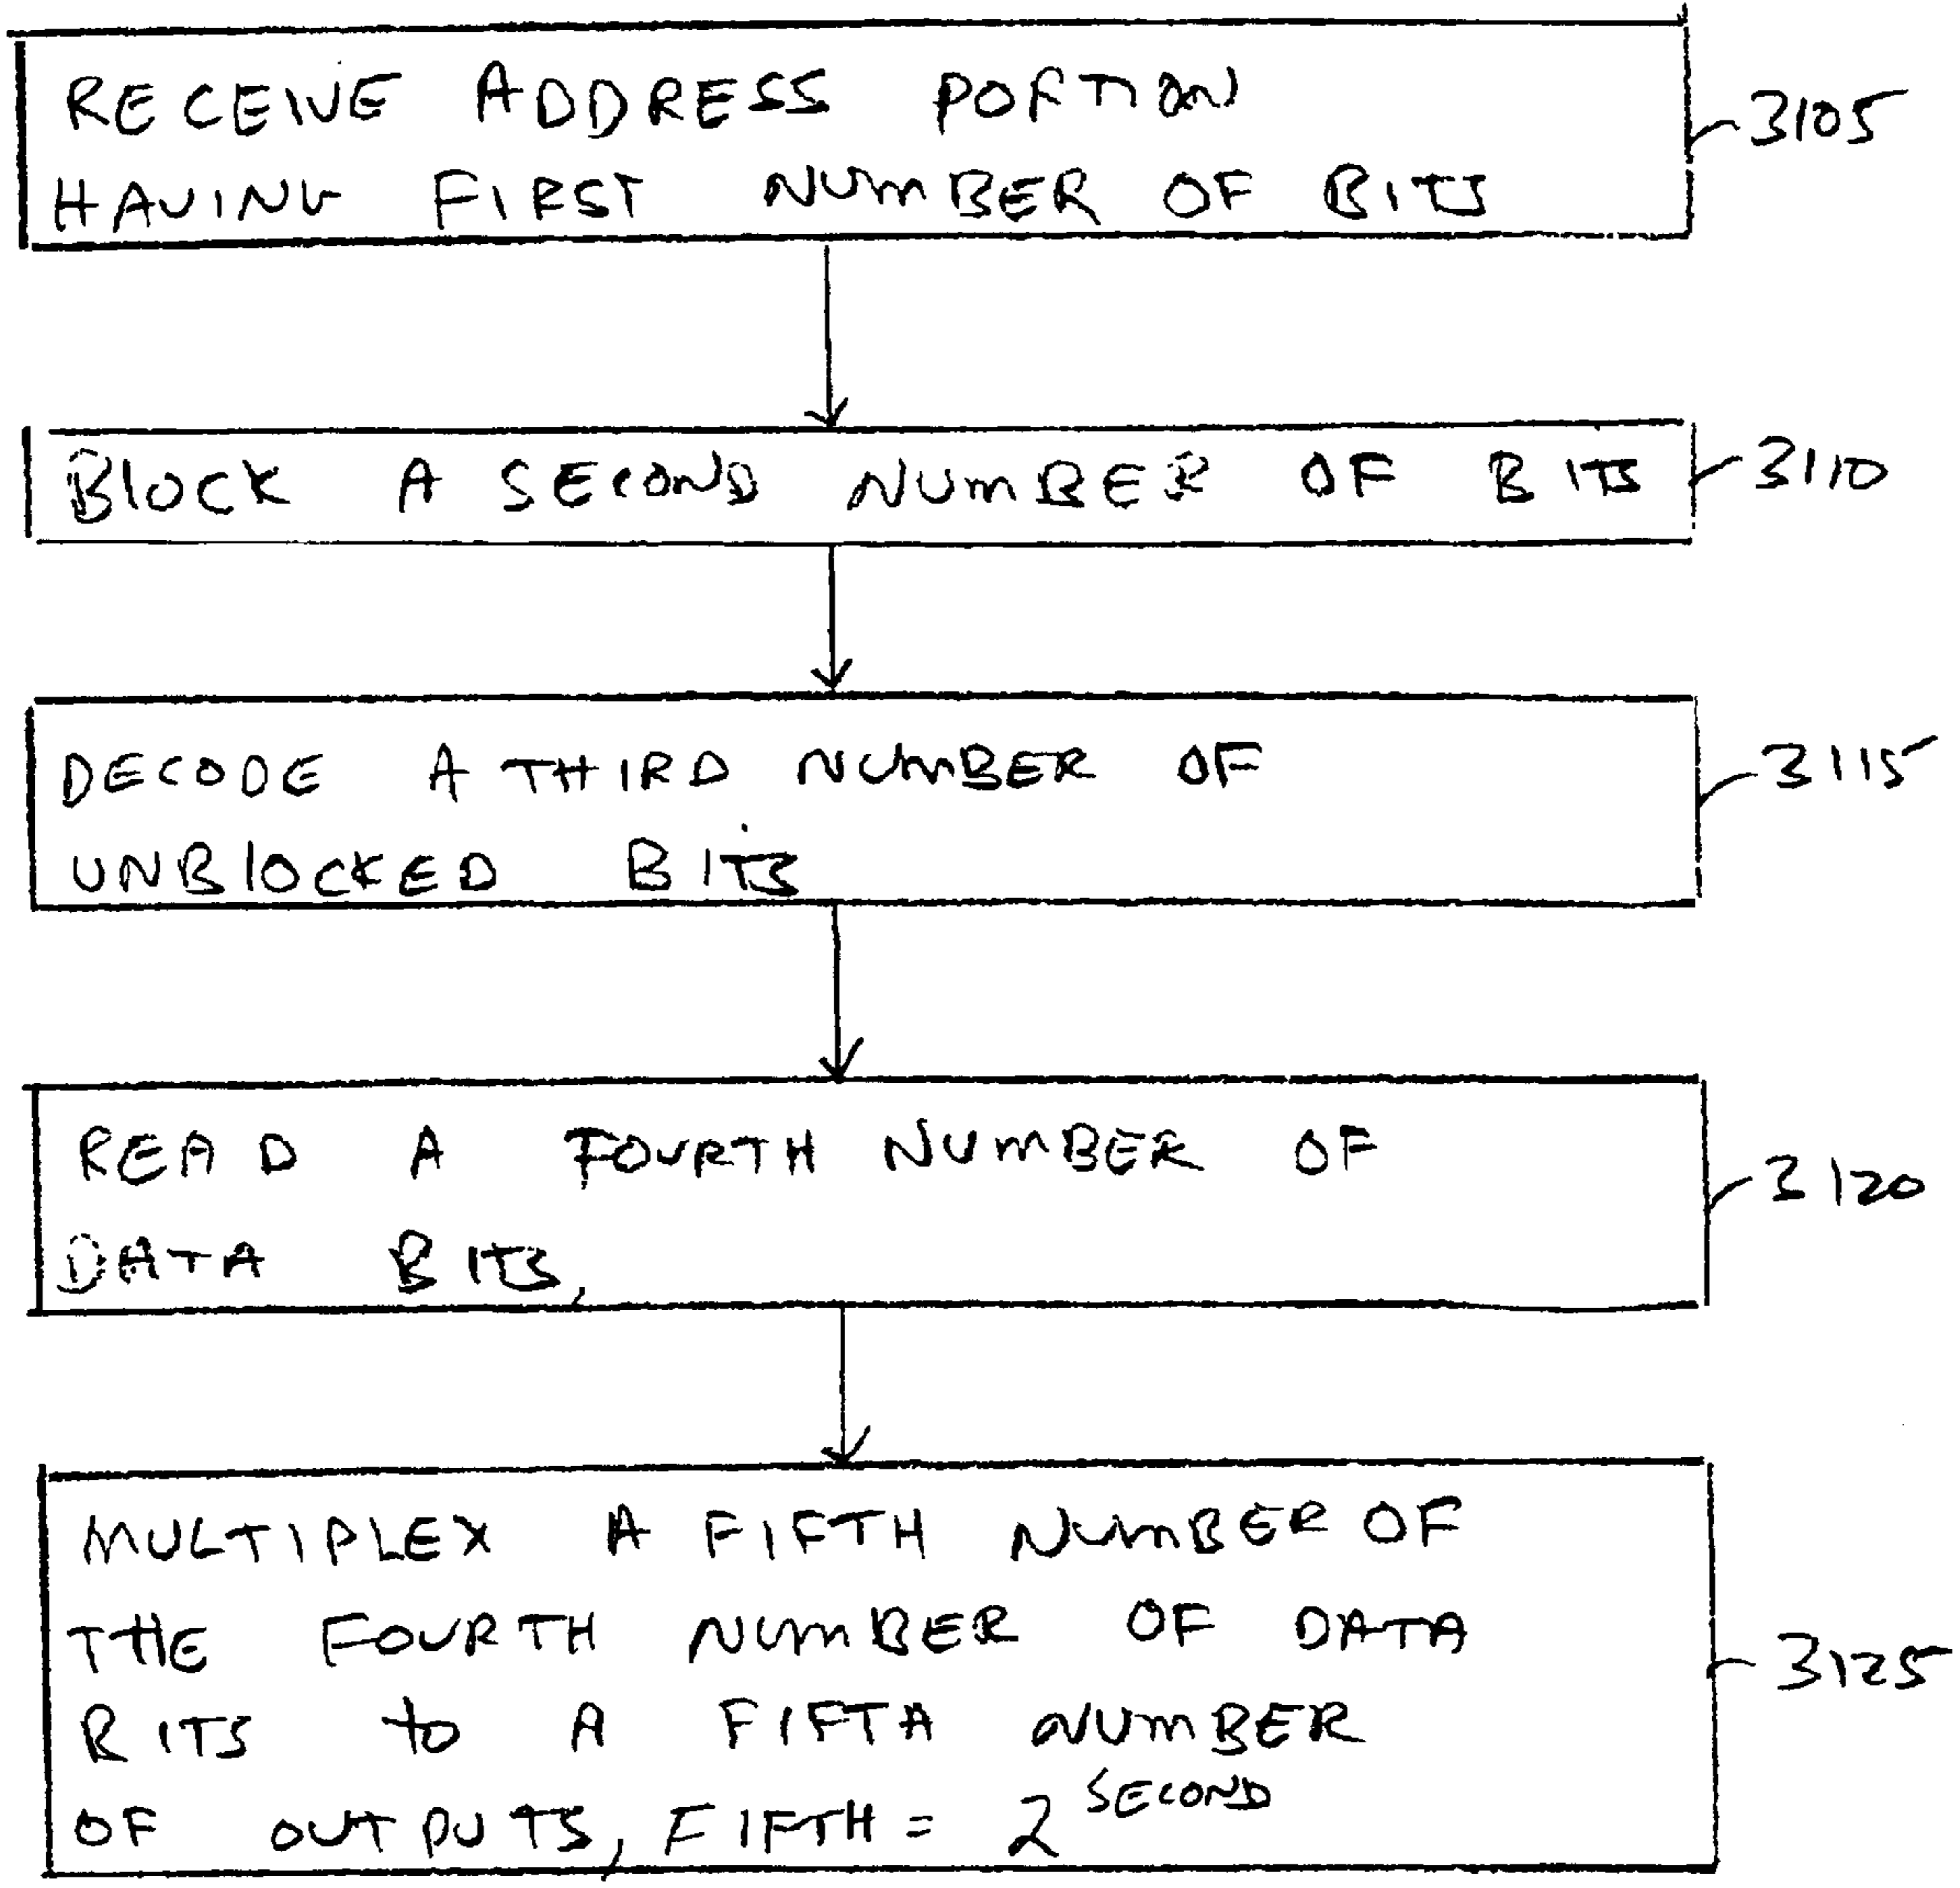 RECEIVE ADDRESS PORTION
HAVING FIRST NUMBER OF BITS
3105
BLOCK A SECOND NUMBER OF BITS
3110
DECODE A THIRD NUMBER OF
UNBLOCKED BITS
3115
READ A FOURTH NUMBER OF
DATA BITS
3120
MULTIPLEX A FIFTH NUMBER OF
THE FOURTH NUMBER OF DATA
BITS to A FIFTH NUMBER
OF OUTPUTS, FIFTH = 2^SECOND
3125